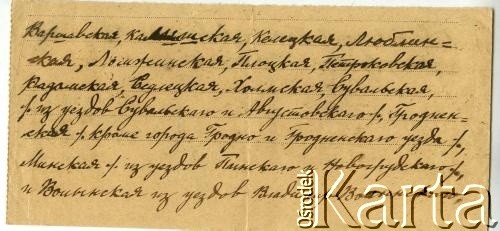 Варшавская, Калишская, Келецкая, Люблин=
ская, Ломжинская, Плоцкая, Петроковская,
Радомская, Седлецкая, Холмская, Сувальская,
/- из уездов Сувальского и Августовского /-, Гроднен-
ская /- кроме города Гродно и Гродненского уезда /-,
Минская /- из уездов Пинского и Новогрудского /-,
и Волынская из уездов
Ośrodek
Karta